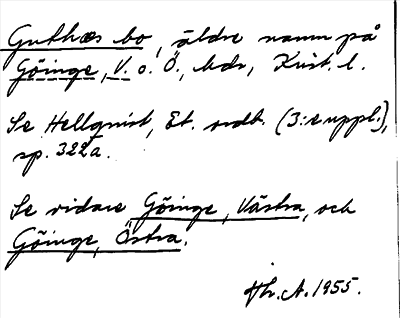 Guthæs bo, äldre namn på
Göinge, V. o. Ö., hdr, Krist. l.
Se Hellquist, Et. ordb. (3:e uppl.),
sp. 322a.
Se vidare Göinge, Västra, och
Göinge, Östra.
Hr. A. 1955.